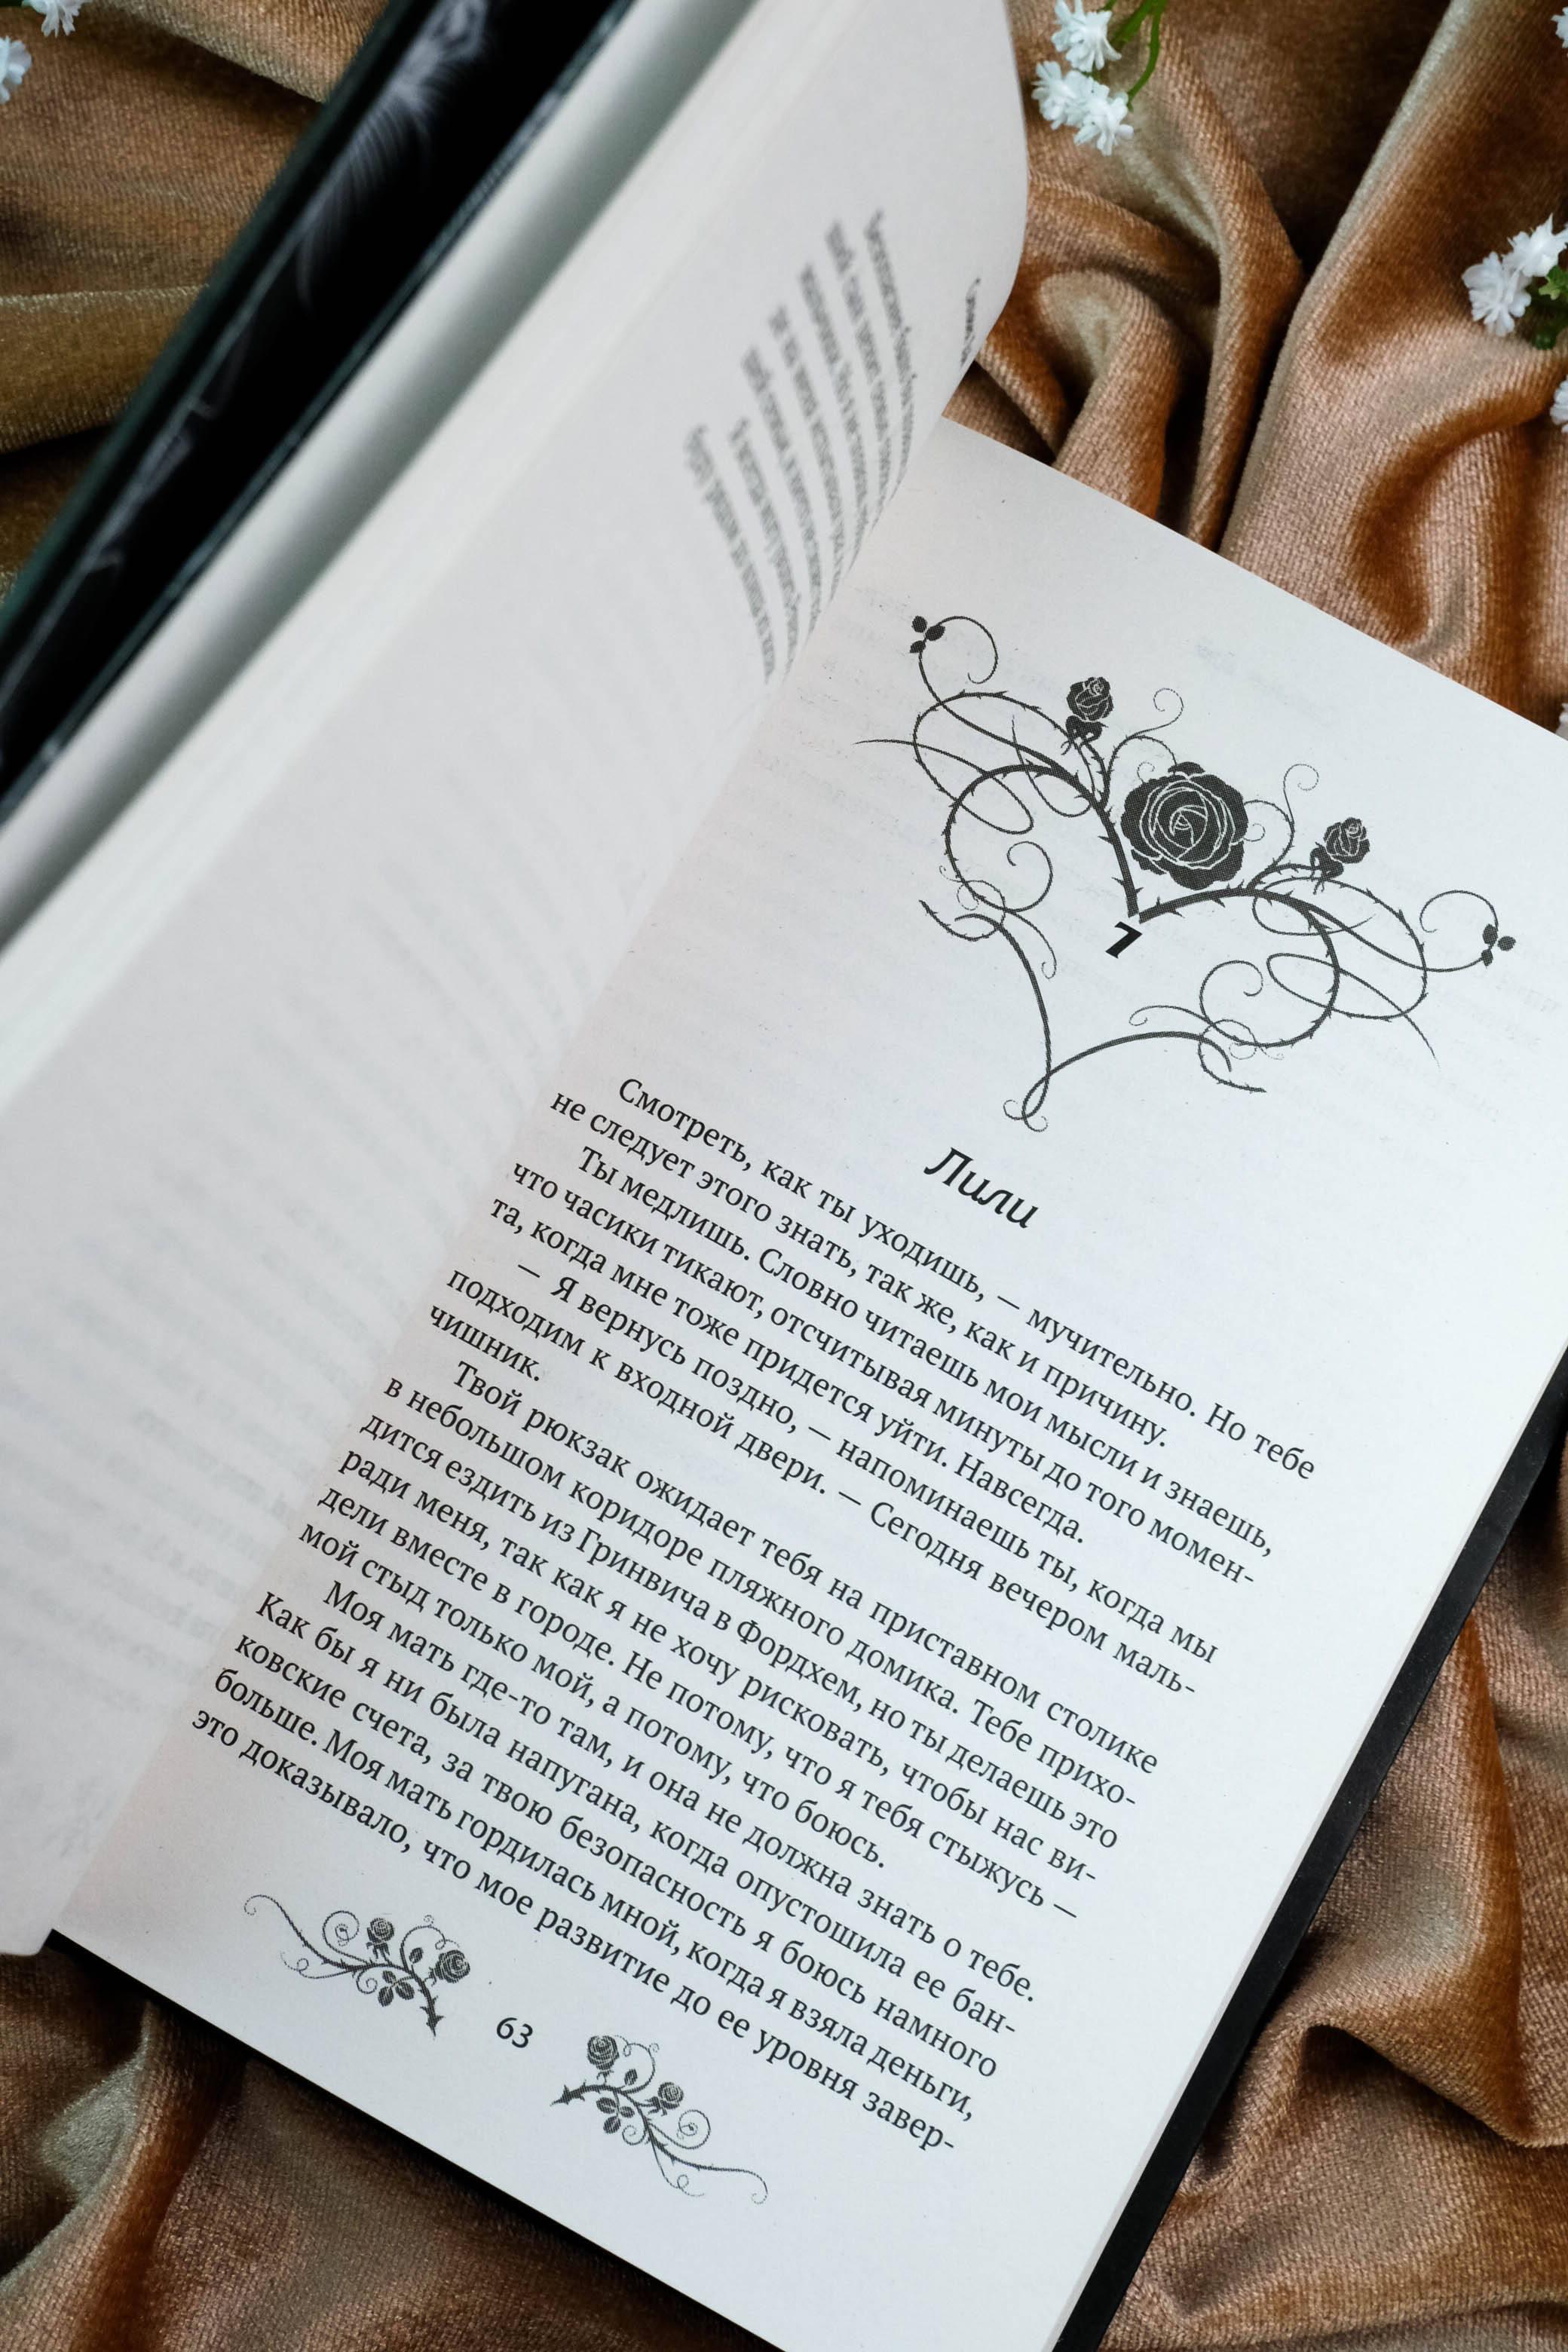 7
Лили
Смотреть, как ты уходишь, — мучительно. Но тебе
не следует этого знать, так же, как и причину.
Ты медлишь. Словно читаешь мои мысли и знаешь,
что часики тикают, отсчитывая минуты до того момен-
та, когда мне тоже придется уйти. Навсегда.
— Я вернусь поздно, — напоминаешь ты, когда мы
подходим к входной двери. — Сегодня вечером маль-
чишник.
Твой рюкзак ожидает тебя на приставном столике
в небольшом коридоре пляжного домика. Тебе прихо-
дится ездить из Гринвича в Фордхем, но ты делаешь это
ради меня, так как я не хочу рисковать, чтобы нас ви-
дели вместе в городе. Не потому, что я тебя стыжусь —
мой стыд только мой, а потому, что боюсь.
Моя мать где-то там, и она не должна знать о тебе.
Как бы я ни была напугана, когда опустошила ее бан-
ковские счета, за твою безопасность я боюсь намного
больше. Моя мать гордилась мной, когда я взяла деньги,
это доказывало, что мое развитие до ее уровня завер-
63